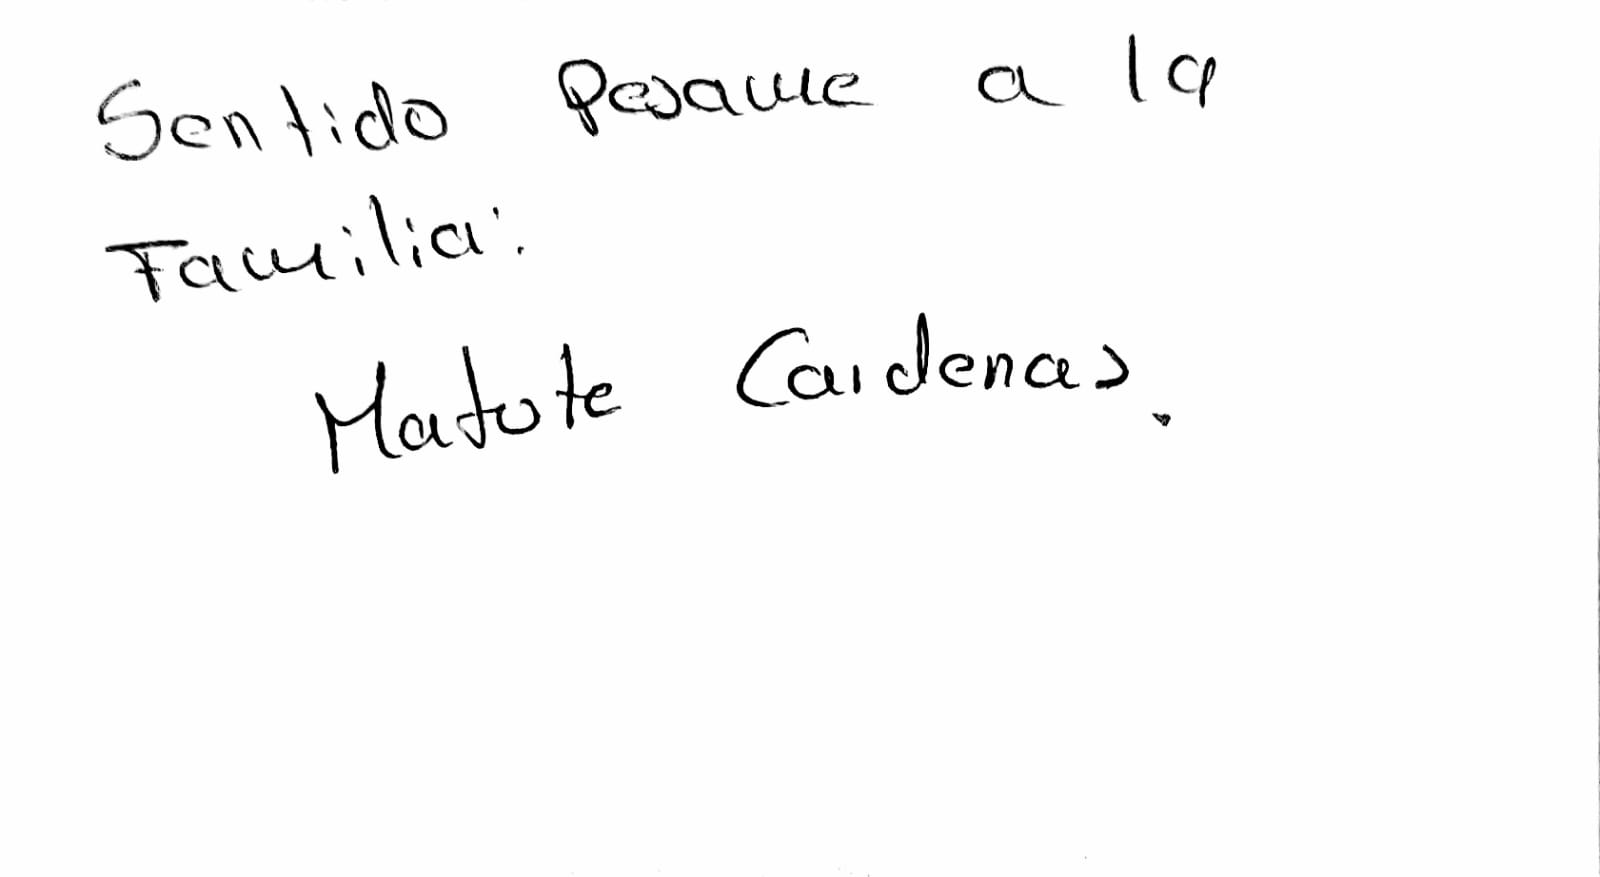 Sentido Pesame a la
Familia:
Matute Cardenas.